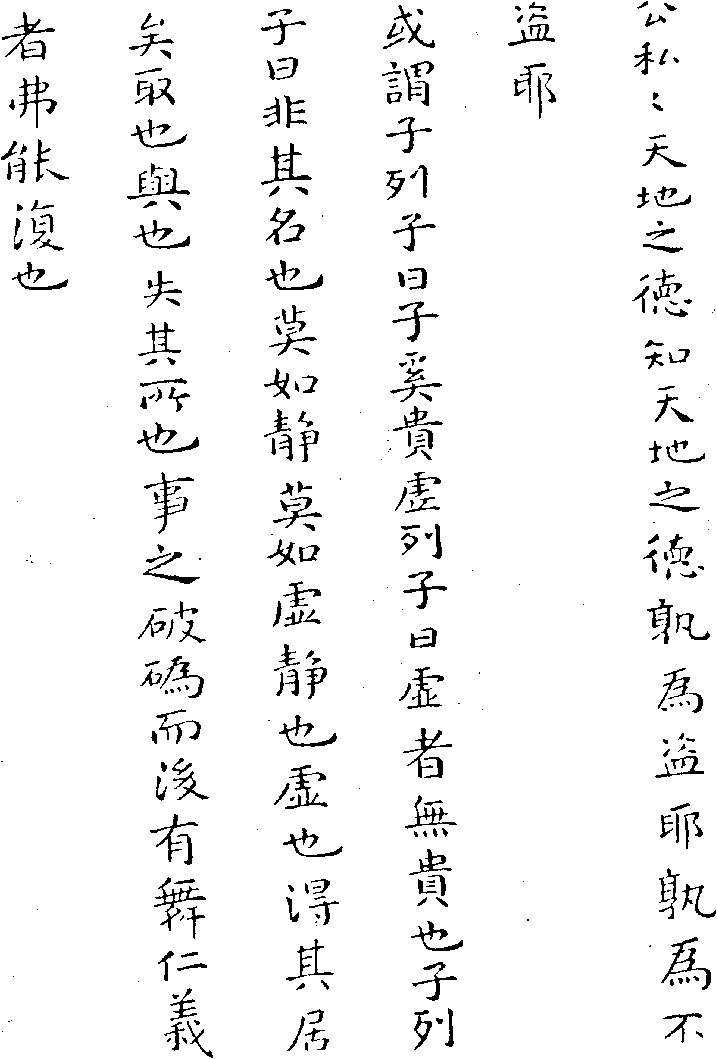 公私〻天地之德知天地之德孰爲盗耶孰爲不
盗耶
或謂子列子曰子奚貴虛列子曰虛者無貴也子列
子曰非其名也莫如静莫如虛静也虛也得其居
矣取也與也失其所也事之破䃣而後有舞仁義
者弗能復也